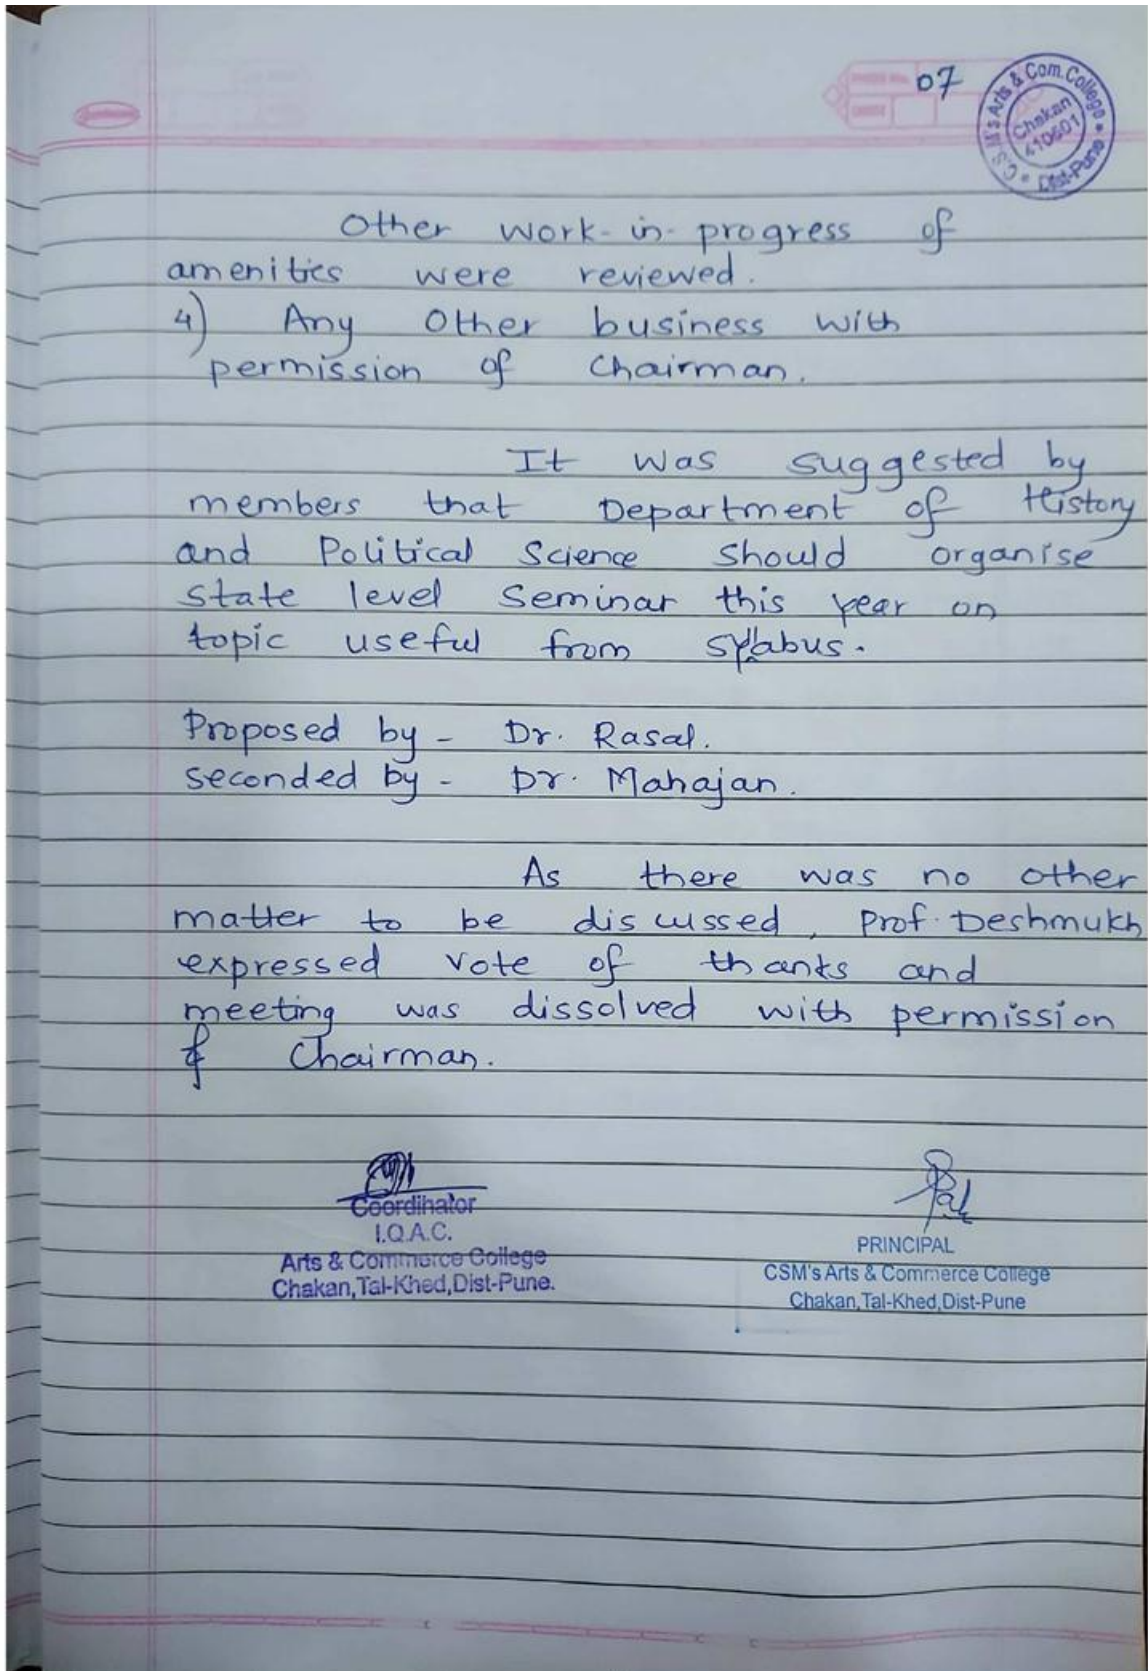 07
C.S.M's Arts & Com. College • Dist-Pune •
Chakan
410501
Other work-in-progress of
amenities were reviewed.
4) Any Other business with
permission of Chairman.
It was suggested by
members that Department of History
and Political Science should organise
state level Seminar this year on
topic useful from syllabus.
Proposed by - Dr. Rasal.
seconded by - Dr. Mahajan.
As there was no other
matter to be discussed, Prof. Deshmukh
expressed vote of thanks and
meeting was dissolved with permission
of Chairman.
Coordinator
I.Q.A.C.
Arts & Commerce College
Chakan, Tal-Khed, Dist-Pune.
PRINCIPAL
CSM's Arts & Commerce College
Chakan, Tal-Khed, Dist-Pune